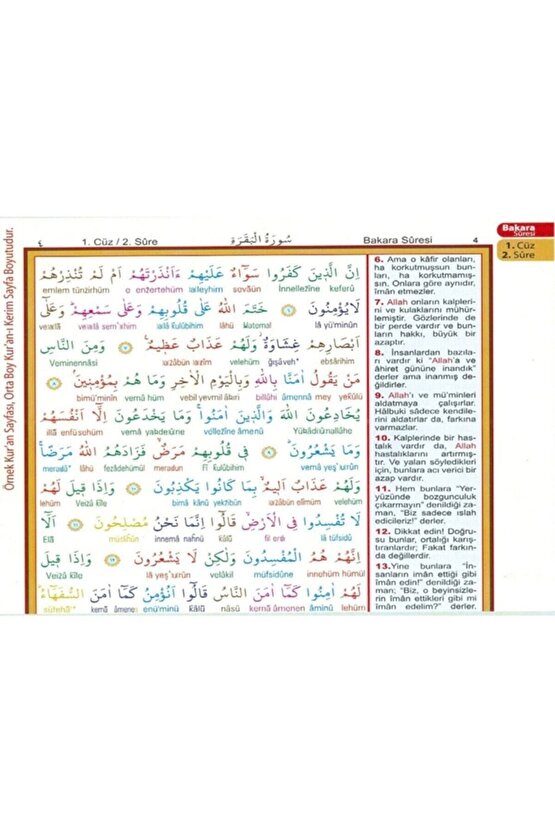 Örnek Kur'an Sayfası, Orta Boy Kur'an-ı Kerim Sayfa Boyutudur.
٤ 1. Cüz / 2. Sûre سُورَةُ الْبَقَرَةِ Bakara Sûresi 4
Bakara
Sûresi
1. Cüz
2. Sûre
اِنَّ الَّذِينَ كَفَرُوا سَوَٓاءٌ عَلَيْهِمْ ءَاَنْذَرْتَهُمْ اَمْ لَمْ تُنْذِرْهُمْ
emlem tünzirhüm e enzertehüm aleyhim sevâün İnnellezîne keferû
لَايُؤْمِنُونَ ﴿٦﴾ خَتَمَ اللّٰهُ عَلٰى قُلُوبِهِمْ وَعَلٰى سَمْعِهِمْ وَعَلٰٓى
ve alâ ve alâ sem'ıhim alâ kulûbihim lâhü Hatemel lâ yü'minûn
اَبْصَارِهِمْ غِشَاوَةٌ وَلَهُمْ عَذَابٌ عَظِيمٌ ﴿٧﴾ وَمِنَ النَّاسِ
Veminennâsi azâbün azîm velehüm ğışâveh* ebsârihim
مَنْ يَقُولُ اٰمَنَّا بِاللّٰهِ وَبِالْيَوْمِ الْاٰخِرِ وَمَا هُمْ بِمُؤْمِنِينَ ﴿٨﴾
bimü'minîn vemâ hüm vebil yevmil âhıri billâhi âmennâ mey yekûlü
يُخَادِعُونَ اللّٰهَ وَالَّذِينَ اٰمَنُوا وَمَا يَخْدَعُونَ اِلَّٓا اَنْفُسَهُمْ
illâ enfüsehüm vemâ yahdeûne vellezîne âmenû Yühâdiûnallâhe
وَمَا يَشْعُرُونَ ﴿٩﴾ فِى قُلُوبِهِمْ مَرَضٌ فَزَادَهُمُ اللّٰهُ مَرَضًا
meradâ* lâhü fezâdehümül meradun fî kulûbihim vemâ yeş'urûn
وَلَهُمْ عَذَابٌ اَلِيمٌ بِمَا كَانُوا يَكْذِبُونَ ﴿١٠﴾ وَاِذَا قِيلَ لَهُمْ
lehüm Veizâ kîle bimâ kânû yekzibûn azâbün elîmüm velehüm
لَا تُفْسِدُوا فِى الْاَرْضِ قَالُٓوا اِنَّمَا نَحْنُ مُصْلِحُونَ ﴿١١﴾ اَلَٓا
Elâ müslihûn innemâ nahnü kâlû fil erdı lâ tüfsidû
اِنَّهُمْ هُمُ الْمُفْسِدُونَ وَلٰكِنْ لَا يَشْعُرُونَ ﴿١٢﴾ وَاِذَا قِيلَ
Veizâ kîle lâ yeş'urûn velâkil müfsidûne innehüm hümül
لَهُمْ اٰمِنُوا كَمَٓا اٰمَنَ النَّاسُ قَالُٓوا اَنُؤْمِنُ كَمَٓا اٰمَنَ السُّفَهَٓاءُ
süfehâ* kemâ âmenes enü'minü kâlû nâsü kemâ âmenen âminû lehüm
6. Ama o kâfir olanları,
ha korkutmuşsun bun-
ları, ha korkutmamış-
sın. Onlara göre aynıdır,
îmân etmezler.
7. Allah onların kalpleri-
ni ve kulaklarını mühür-
lemiştir. Gözlerinde de
bir perde vardır ve bun-
ların hakkı, büyük bir
azaptır.
8. İnsanlardan bazıla-
rı vardır ki "Allah'a ve
âhiret gününe inandık"
derler ama inanmış de-
ğildirler.
9. Allah'ı ve mü'minleri
aldatmaya çalışırlar.
Hâlbuki sâdece kendile-
rini aldatırlar da, farkına
varmazlar.
10. Kalplerinde bir has-
talık vardır da, Allah
hastalıklarını artırmış-
tır. Ve yalan söyledikleri
için, bunlara acı verici bir
azap vardır.
11. Hem bunlara "Yer-
yüzünde bozgunculuk
çıkarmayın" denildiği za-
man, "Biz sadece islah
edicileriz!" derler.
12. Dikkat edin! Doğru-
su bunlar, ortalığı karış-
tıranlardır; Fakat farkın-
da değillerdir.
13.Yine bunlara "İn-
sanların îmân ettiği gibi
îmân edin!" denildiği za-
man; "Biz, o beyinsizle-
rin îmân ettikleri gibi mi
îmân edelim?" derler.